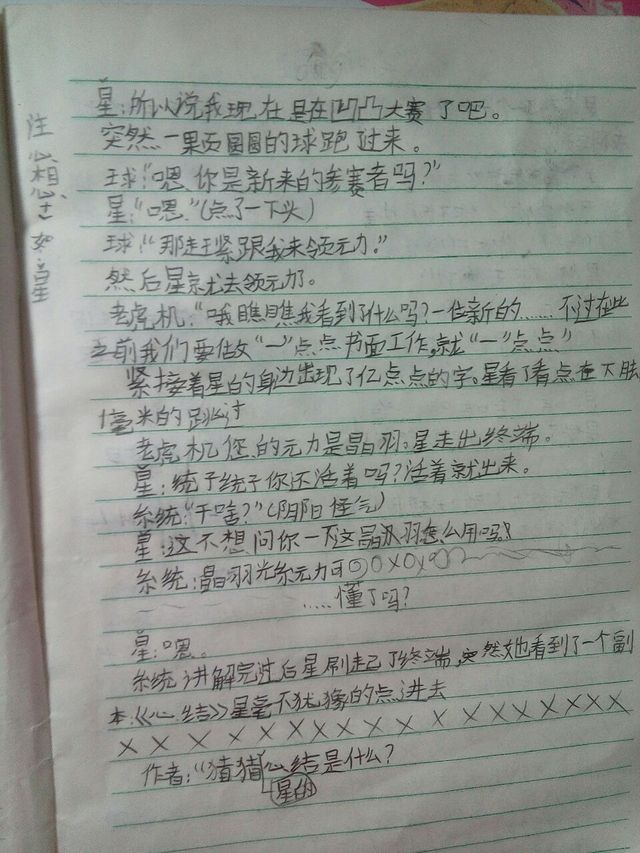 星:所以说我现在是在凹凸大赛了吧。
突然一果页圆圆的球跑过来。
球:"嗯,你是新来的参赛者吗?"
星:"嗯"(点了一下头)
球:"那赶紧跟我来领元力。"
然后星就去领元力了。
老虎机:"哦瞧瞧我看到了什么吗?一位新的……不过在此
之前我们要做"一"点点书面工作,就"一"点点"
紧接着星的身边出现了亿点点的字。星看了看点在下
毫米的跳过
老虎机您的元力是晶羽。星走出终端。
星:统子统子你还活着吗?活着就出来。
系统:"干啥?"(阴阳怪气)
星:这不想问你一下这晶羽怎么用吗!
系统:晶羽光系元力可
……懂了吗?
星:嗯。
系统讲解完过后星刷起了终端,突然她看到了一个副
本《心结》星毫不犹豫的点进去
××××××××××××××××××
作者:"猜猜心结是什么?
星的
注心想
如星